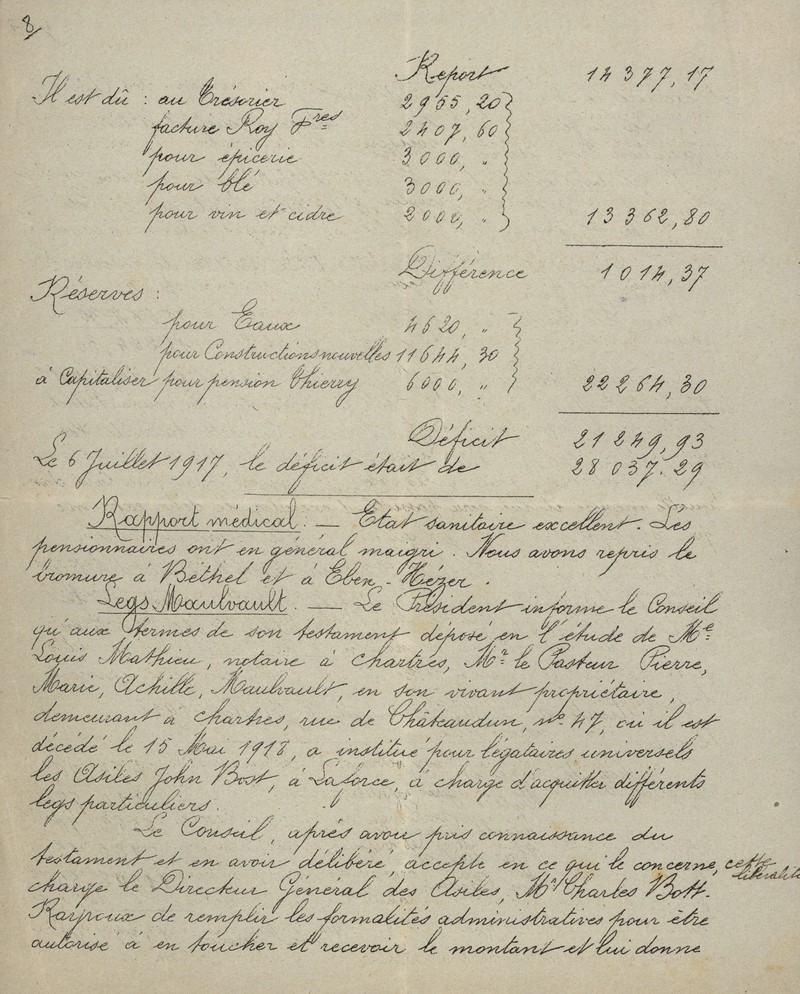 8
Report 14 377, 17
Il est dû : au Trésorier 2955, 20
facture Roy Fres 2407, 60
pour épicerie 3000, "
pour blé 3000, "
pour vin et cidre 2000, " 13 362, 80
Différence 1 014, 37
Réserves :
pour Eaux 4620, "
pour Constructions nouvelles 11644, 30
à Capitaliser pour pension Thierry 6000, " 22 264, 30
Déficit 21 249, 93
Le 6 Juillet 1917, le déficit était de 28 037. 29
Rapport médical. — Etat sanitaire excellent. Les
pensionnaires ont en général maigri. Nous avons repris le
bromure à Béthel et à Eben-Hézer.
Legs Maulvault. — Le Président informe le Conseil
qu'aux termes de son testament déposé en l'étude de Me
Louis Mathieu, notaire à Chartres, Mr le Pasteur Pierre,
Marie, Achille, Maulvault, en son vivant propriétaire,
demeurant à Chartres, rue de Châteaudun, no 47, où il est
décédé le 15 Mai 1918, a institué pour légataires universels
les Asiles John Bost, à Laforce, à charge d'acquitter différents
legs particuliers.
Le Conseil, après avoir pris connaissance du
testament et en avoir délibéré, accepte en ce qui le concerne, cette
libéralité
charge le Directeur Général des Asiles, Mr Charles Bost-
Rayroux de remplir les formalités administratives pour être
autorisé à en toucher et recevoir le montant et lui donne